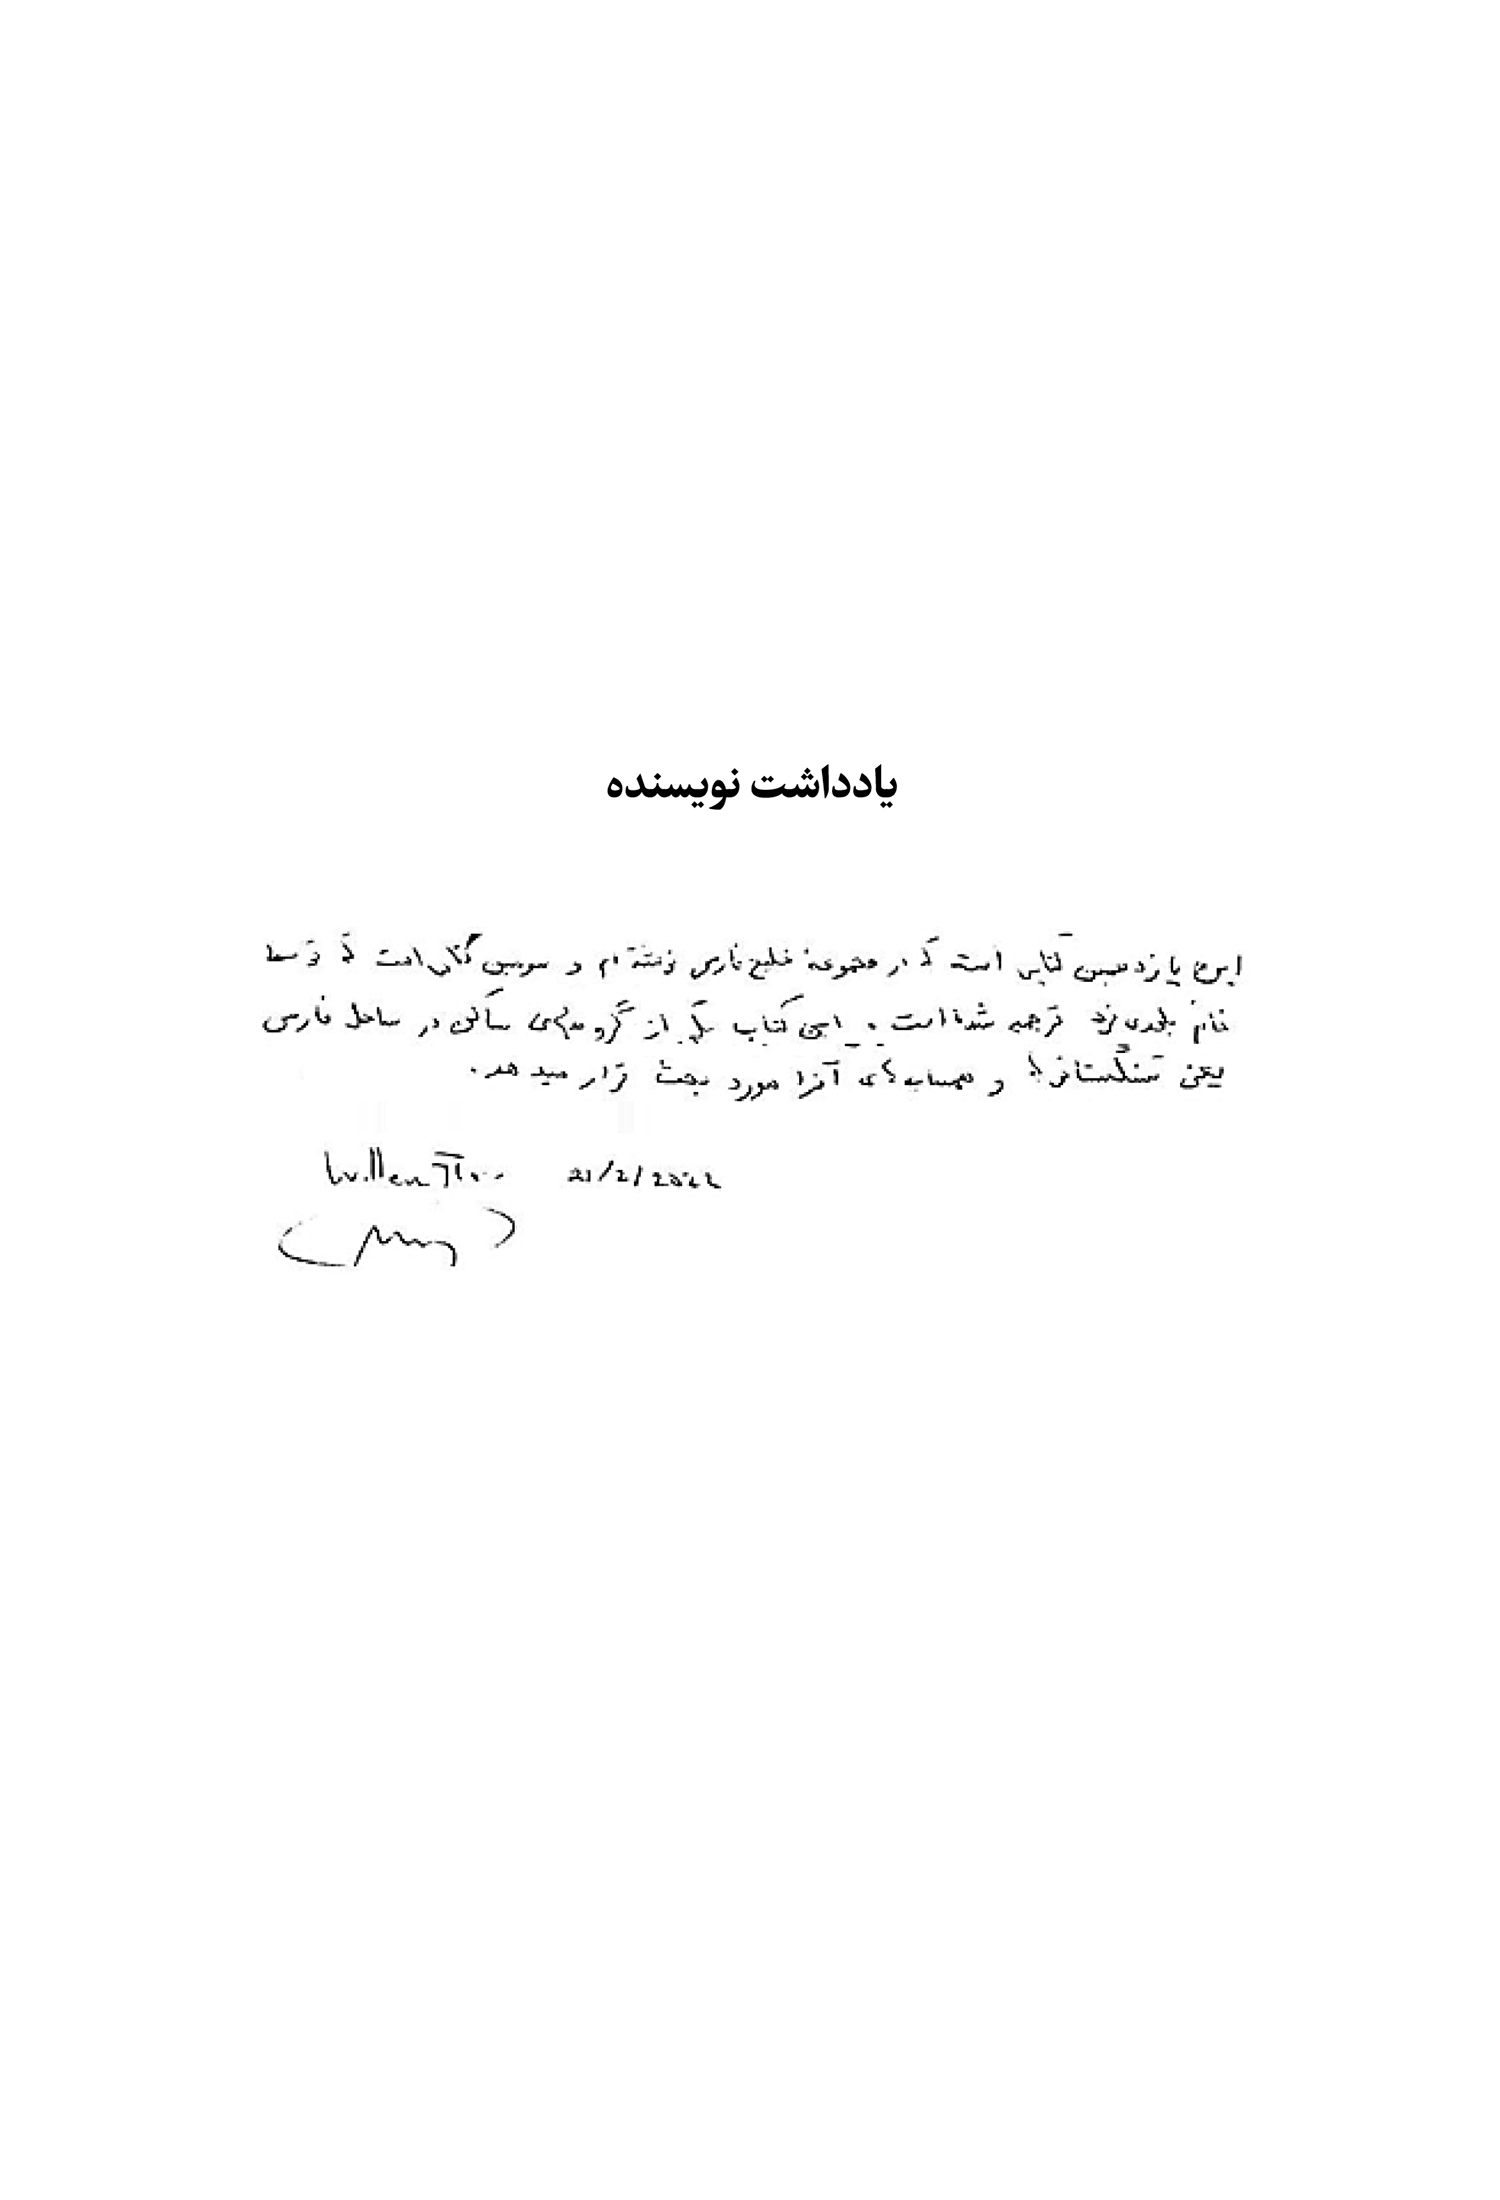 یادداشت نویسنده
این یازدهمین کتابی است که در مجموعهٔ خلیج فارس نوشته‌ام و سومین کتابی است که توسط
خانم ترجمه شده است. این کتاب یکی از گروه‌های ساکن در ساحل فارسی
یعنی تنگستانی‌ها و همسایه‌های آنرا مورد بحث قرار میدهد.
Willem Floor 21/2/2022